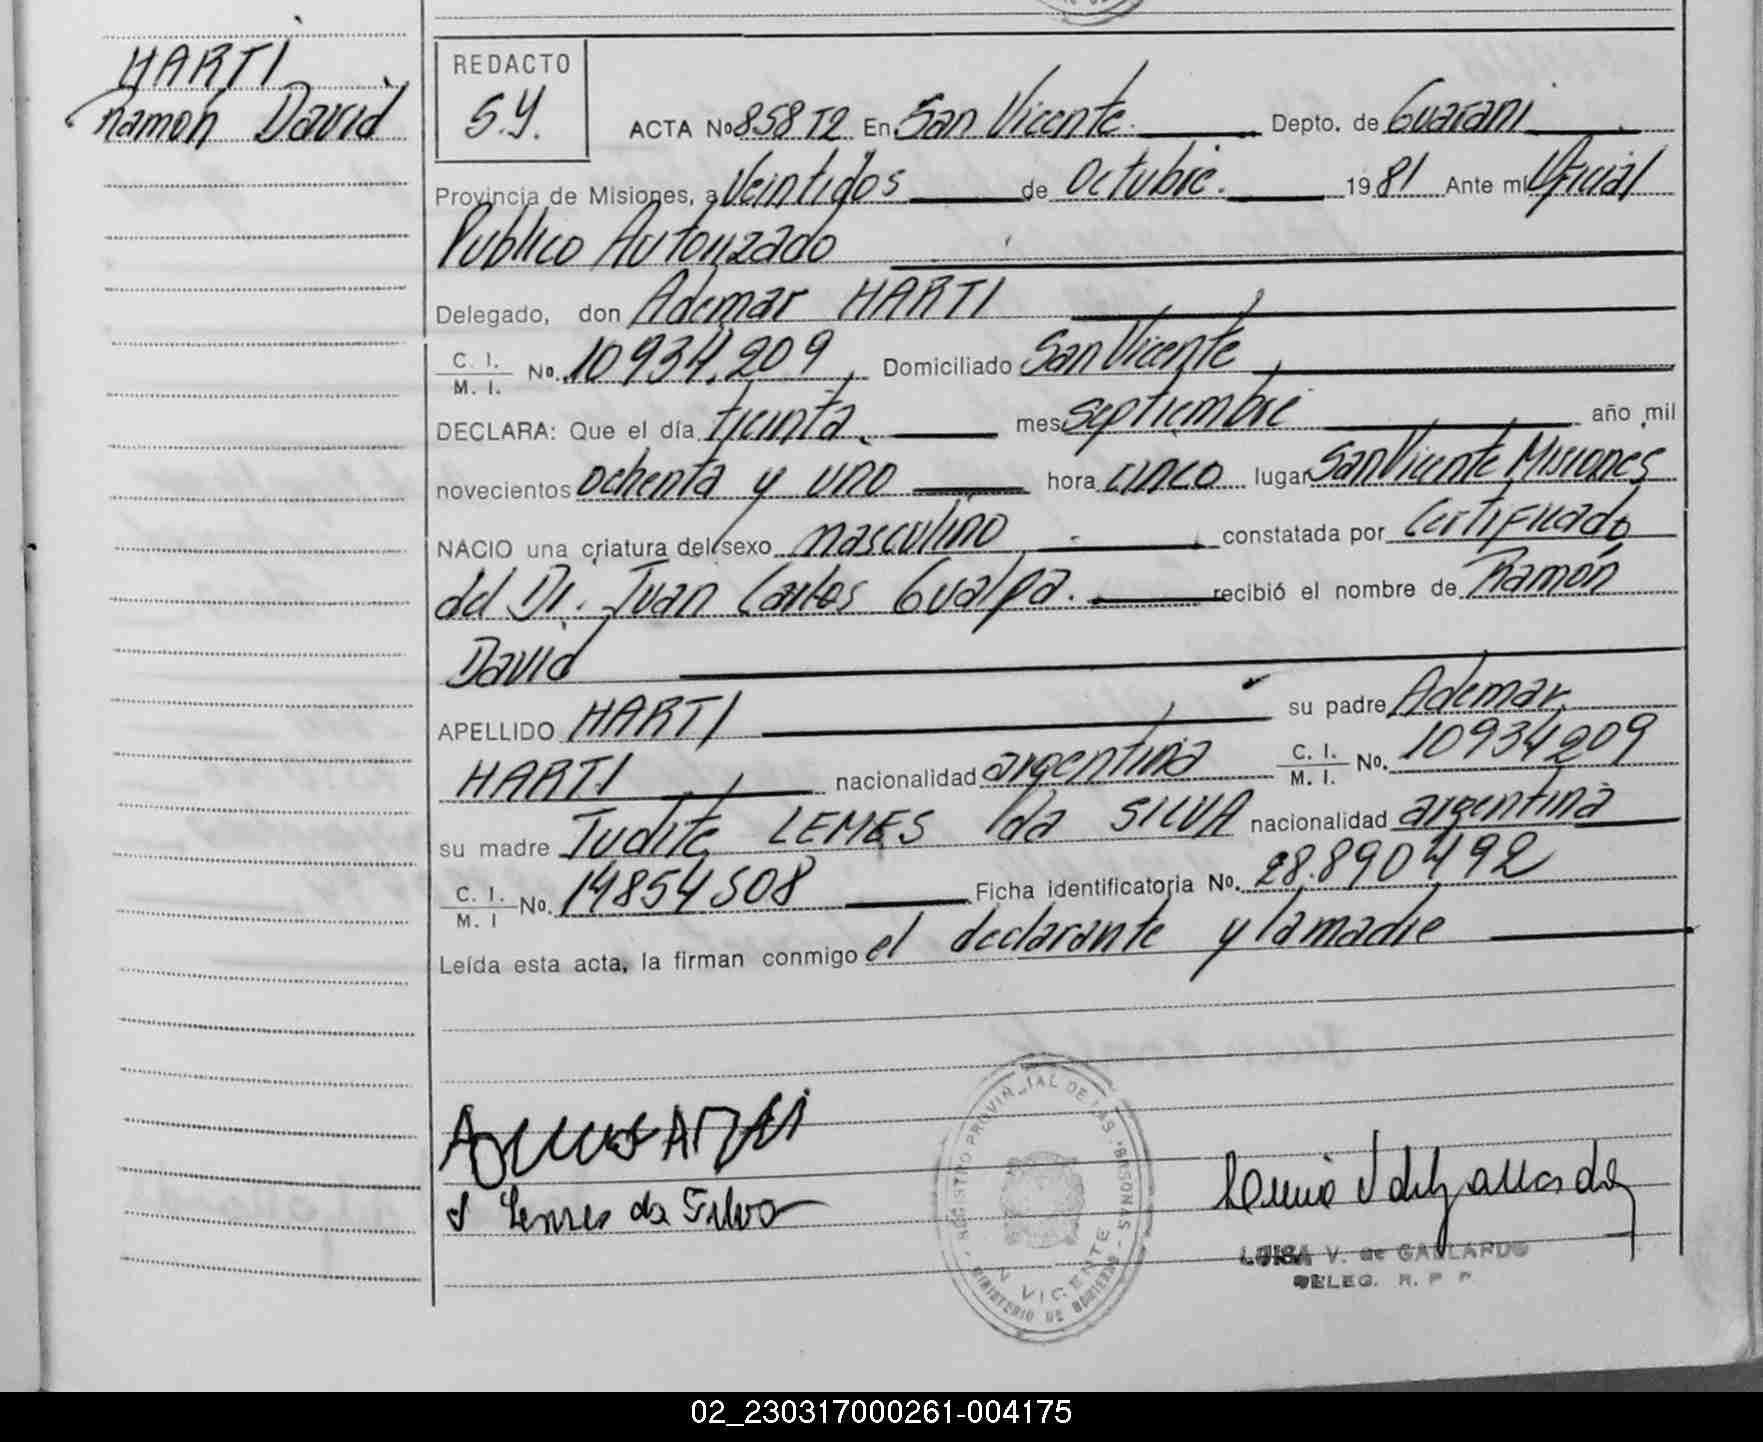 HARTI
Ramón David
REDACTO
S.Y.
ACTA No 858 T2 En San Vicente. Depto. de Guaraní
Provincia de Misiones, a Veintidos de Octubre. 1981 Ante mí Oficial
Publico Autorizado
Delegado, don Ademar HARTI
C. I. / M. I. No. 10934.209 Domiciliado San Vicente
DECLARA: Que el día treinta. mes septiembre año mil
novecientos ochenta y uno hora cinco lugar San Vicente Misiones
NACIO una criatura del sexo masculino constatada por Certificado
del Dr. Juan Carlos Gualpa. recibió el nombre de Ramón
David
APELLIDO HARTI su padre Ademar
HARTI nacionalidad argentina C. I. / M. I. No. 10934209
su madre Judite LEMES da SILVA nacionalidad argentina
C. I. / M. I No. 14854508 Ficha identificatoria No. 28.890492
Leída esta acta, la firman conmigo el declarante y la madre
J Lemes da Silva
REGISTRO PROVINCIAL DE LAS PERSONAS
N VICENTE
MINISTERIO DE GOBIERNO
LUISA V. de GALLARDO
DELEG. R. P P
02_230317000261-004175